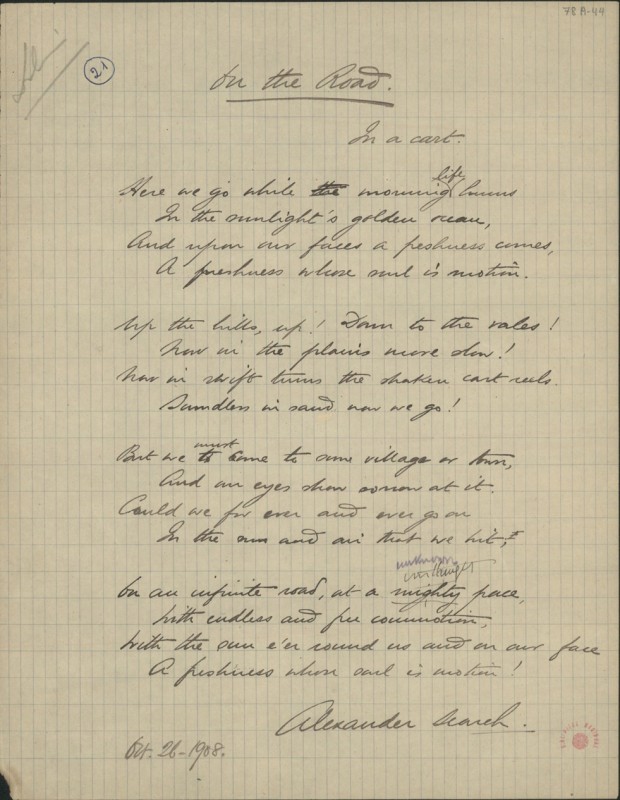 78A-44
21
On the Road.
In a cart.
life
Here we go while the morning hums
In the sunlight's golden ocean,
And upon our faces a freshness comes,
A freshness whose soul is motion.
Up the hills, up! Down to the vales!
Now in the plains more slow!
Now in swift turns the shaken cart reels.
Soundless in sand now we go!
must
But we to come to some village or town,
And our eyes show sorrow at it.
Could we for ever and ever go on
In the sun and air that we hit;
unknown
On an infinite road, at a mighty pace,
With endless and free commotion,
With the sun e'er round us and on our face
A freshness whose soul is motion!
Alexander Search.
Oct. 26-1908.